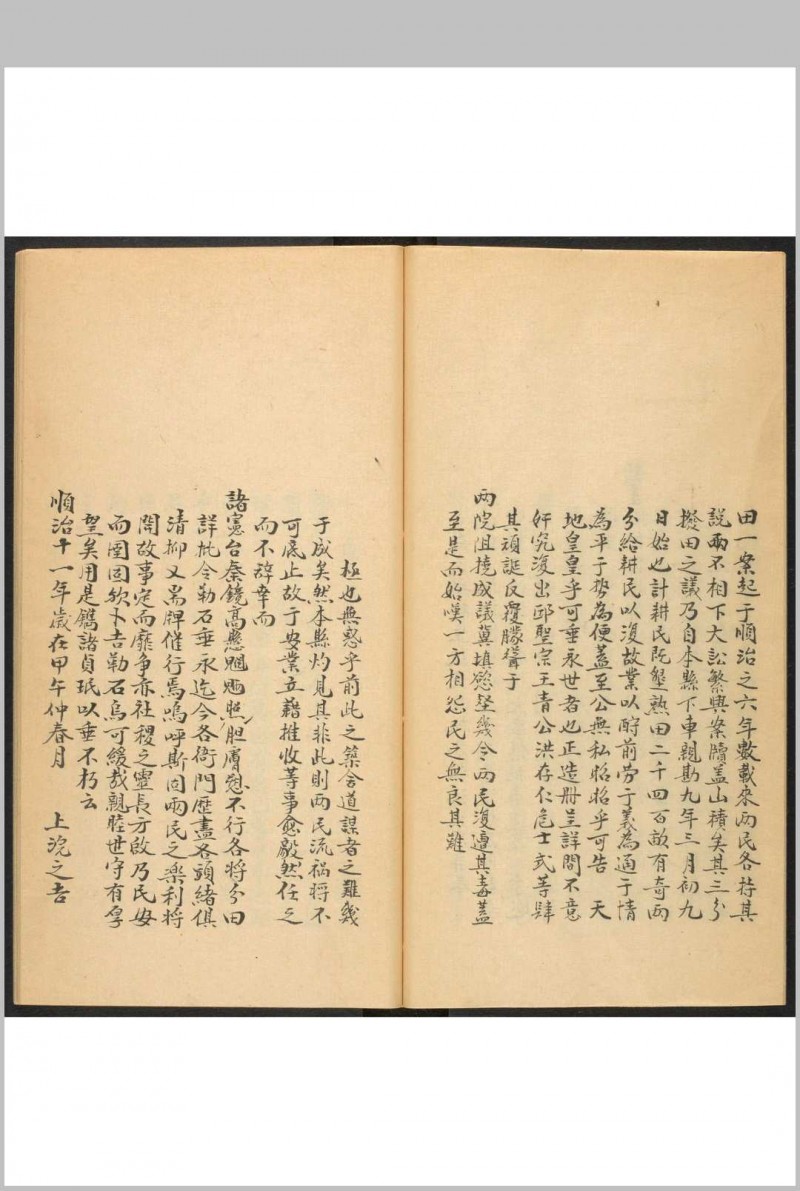 田一案起于順治之六年數載來兩民各持其
說兩不相下大訟繁興案牘盖山積矣其三分
撥田之議乃自本縣下車親勘九年三月初九
日始也計耕民既墾熟田二千四百畝有奇兩
分給耕民以復故業以酧前勞于義為通于情
為平于势為便蓋至公無私昭昭乎可告 天
地皇皇乎可垂永世者也正造册呈詳間不意
奸宄復出邱聖宗王青公洪存仁危士式等肆
其頑誕反覆朦聳于
兩院阻撓成議冀填慾壑幾令兩民復遭其毒蓋
至是而始嘆一方相怨民之無良其難
極也無惑乎前此之築舍道謀者之難幾
于成矣然本縣灼見其非此則兩民流祸將不
可底止故于安業立藉推收等事愈毅然任之
而不辞幸而
諸憲台秦鏡高懸魍魎照胆膚愬不行各將分田
詳批令勒石垂永迄今各衙門歷盡各頭緒俱
清抑又嵩牌催行焉嗚呼斯固兩民之樂利將
闗故事定而靡争亦社稷之靈長方啟乃民毋
而圄囹欤卜吉勒石烏可緩哉親睦世守有孚
望矣用是鐫諸貞珉以垂不朽云
順治十一年歲在甲午仲春月 上浣之吉